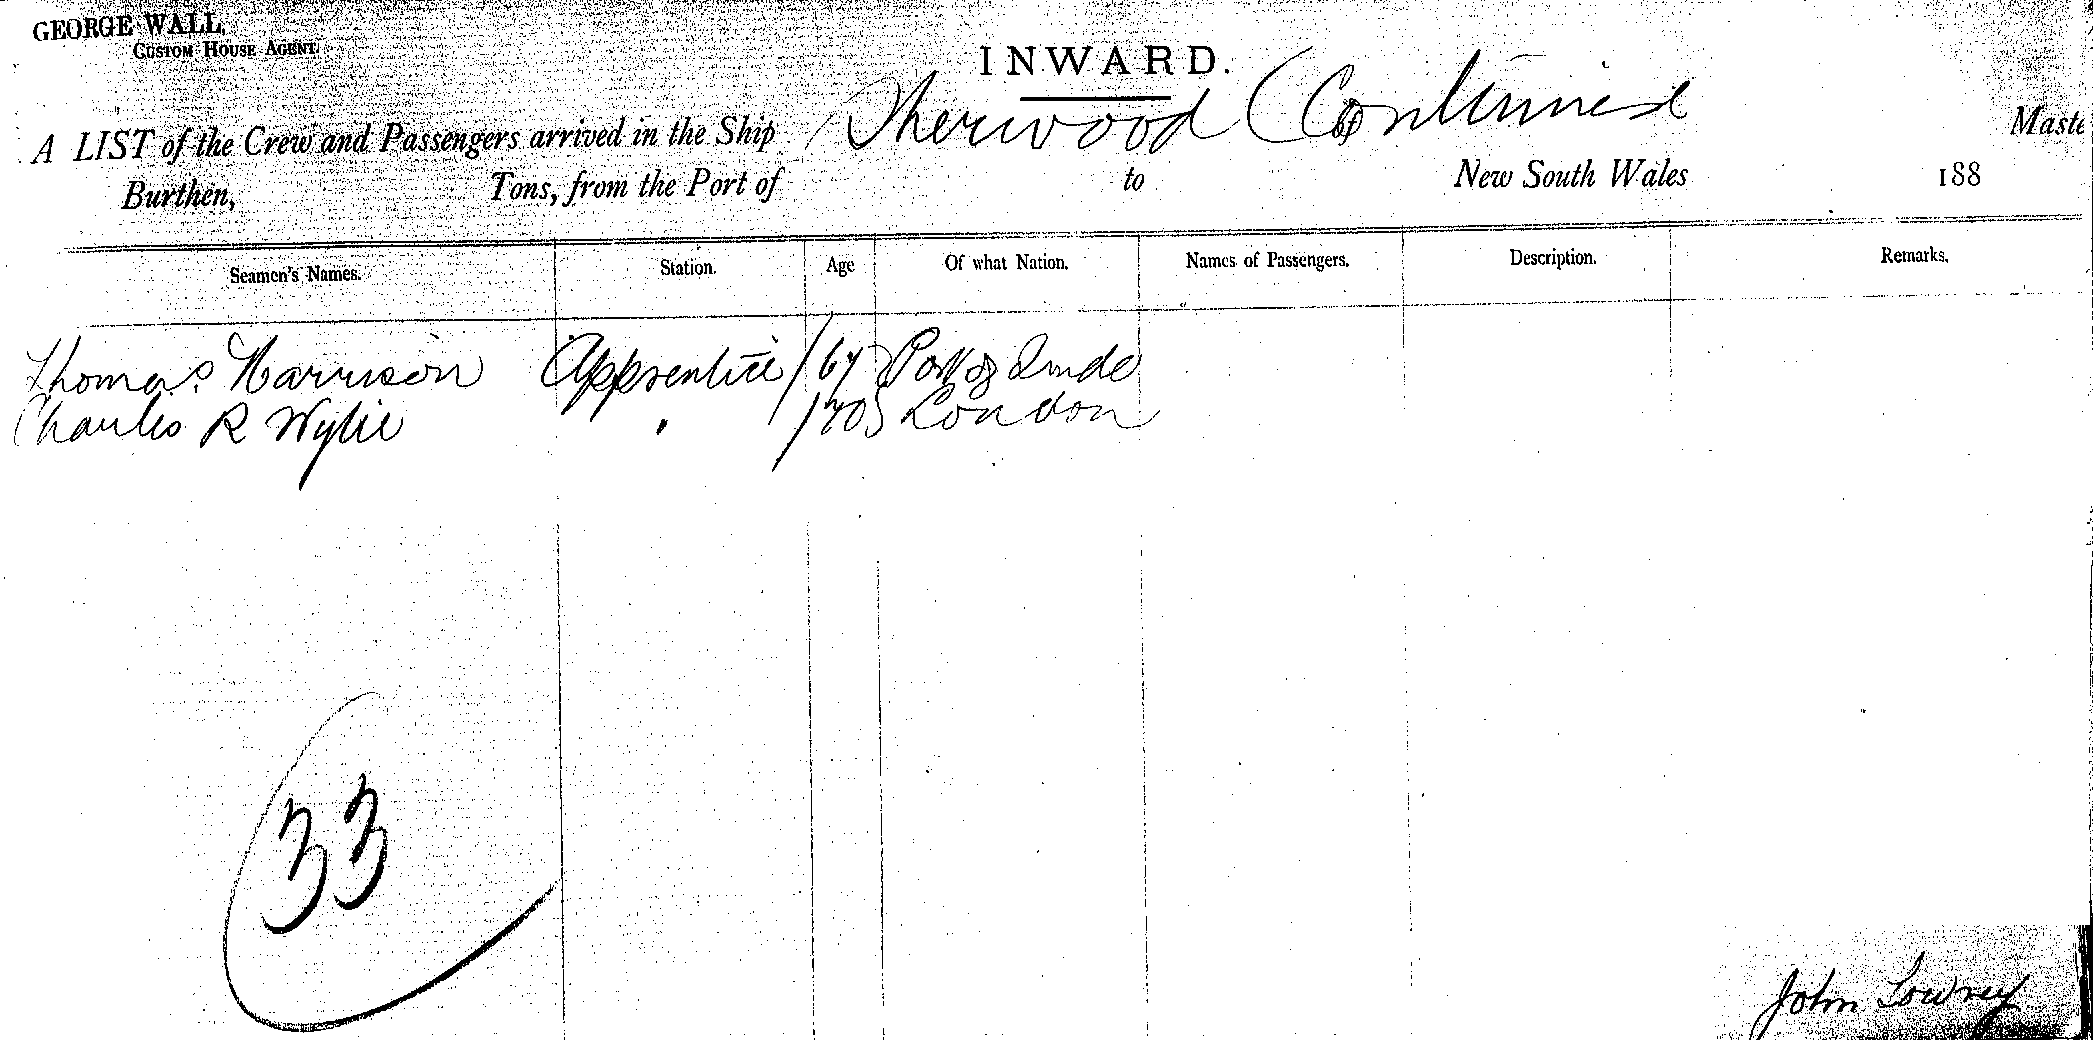 GEORGE WALL,
CUSTOM HOUSE AGENT.
INWARD.
A LIST of the Crew and Passengers arrived in the Ship Sherwood (Continued Maste
Burthen, Tons, from the Port of to New South Wales 188
Seamen's Names. Station. Age Of what Nation. Names of Passengers. Description. Remarks.
Thomas Harrison Apprentice
Charles R Wylie " London
33
John Lowrey